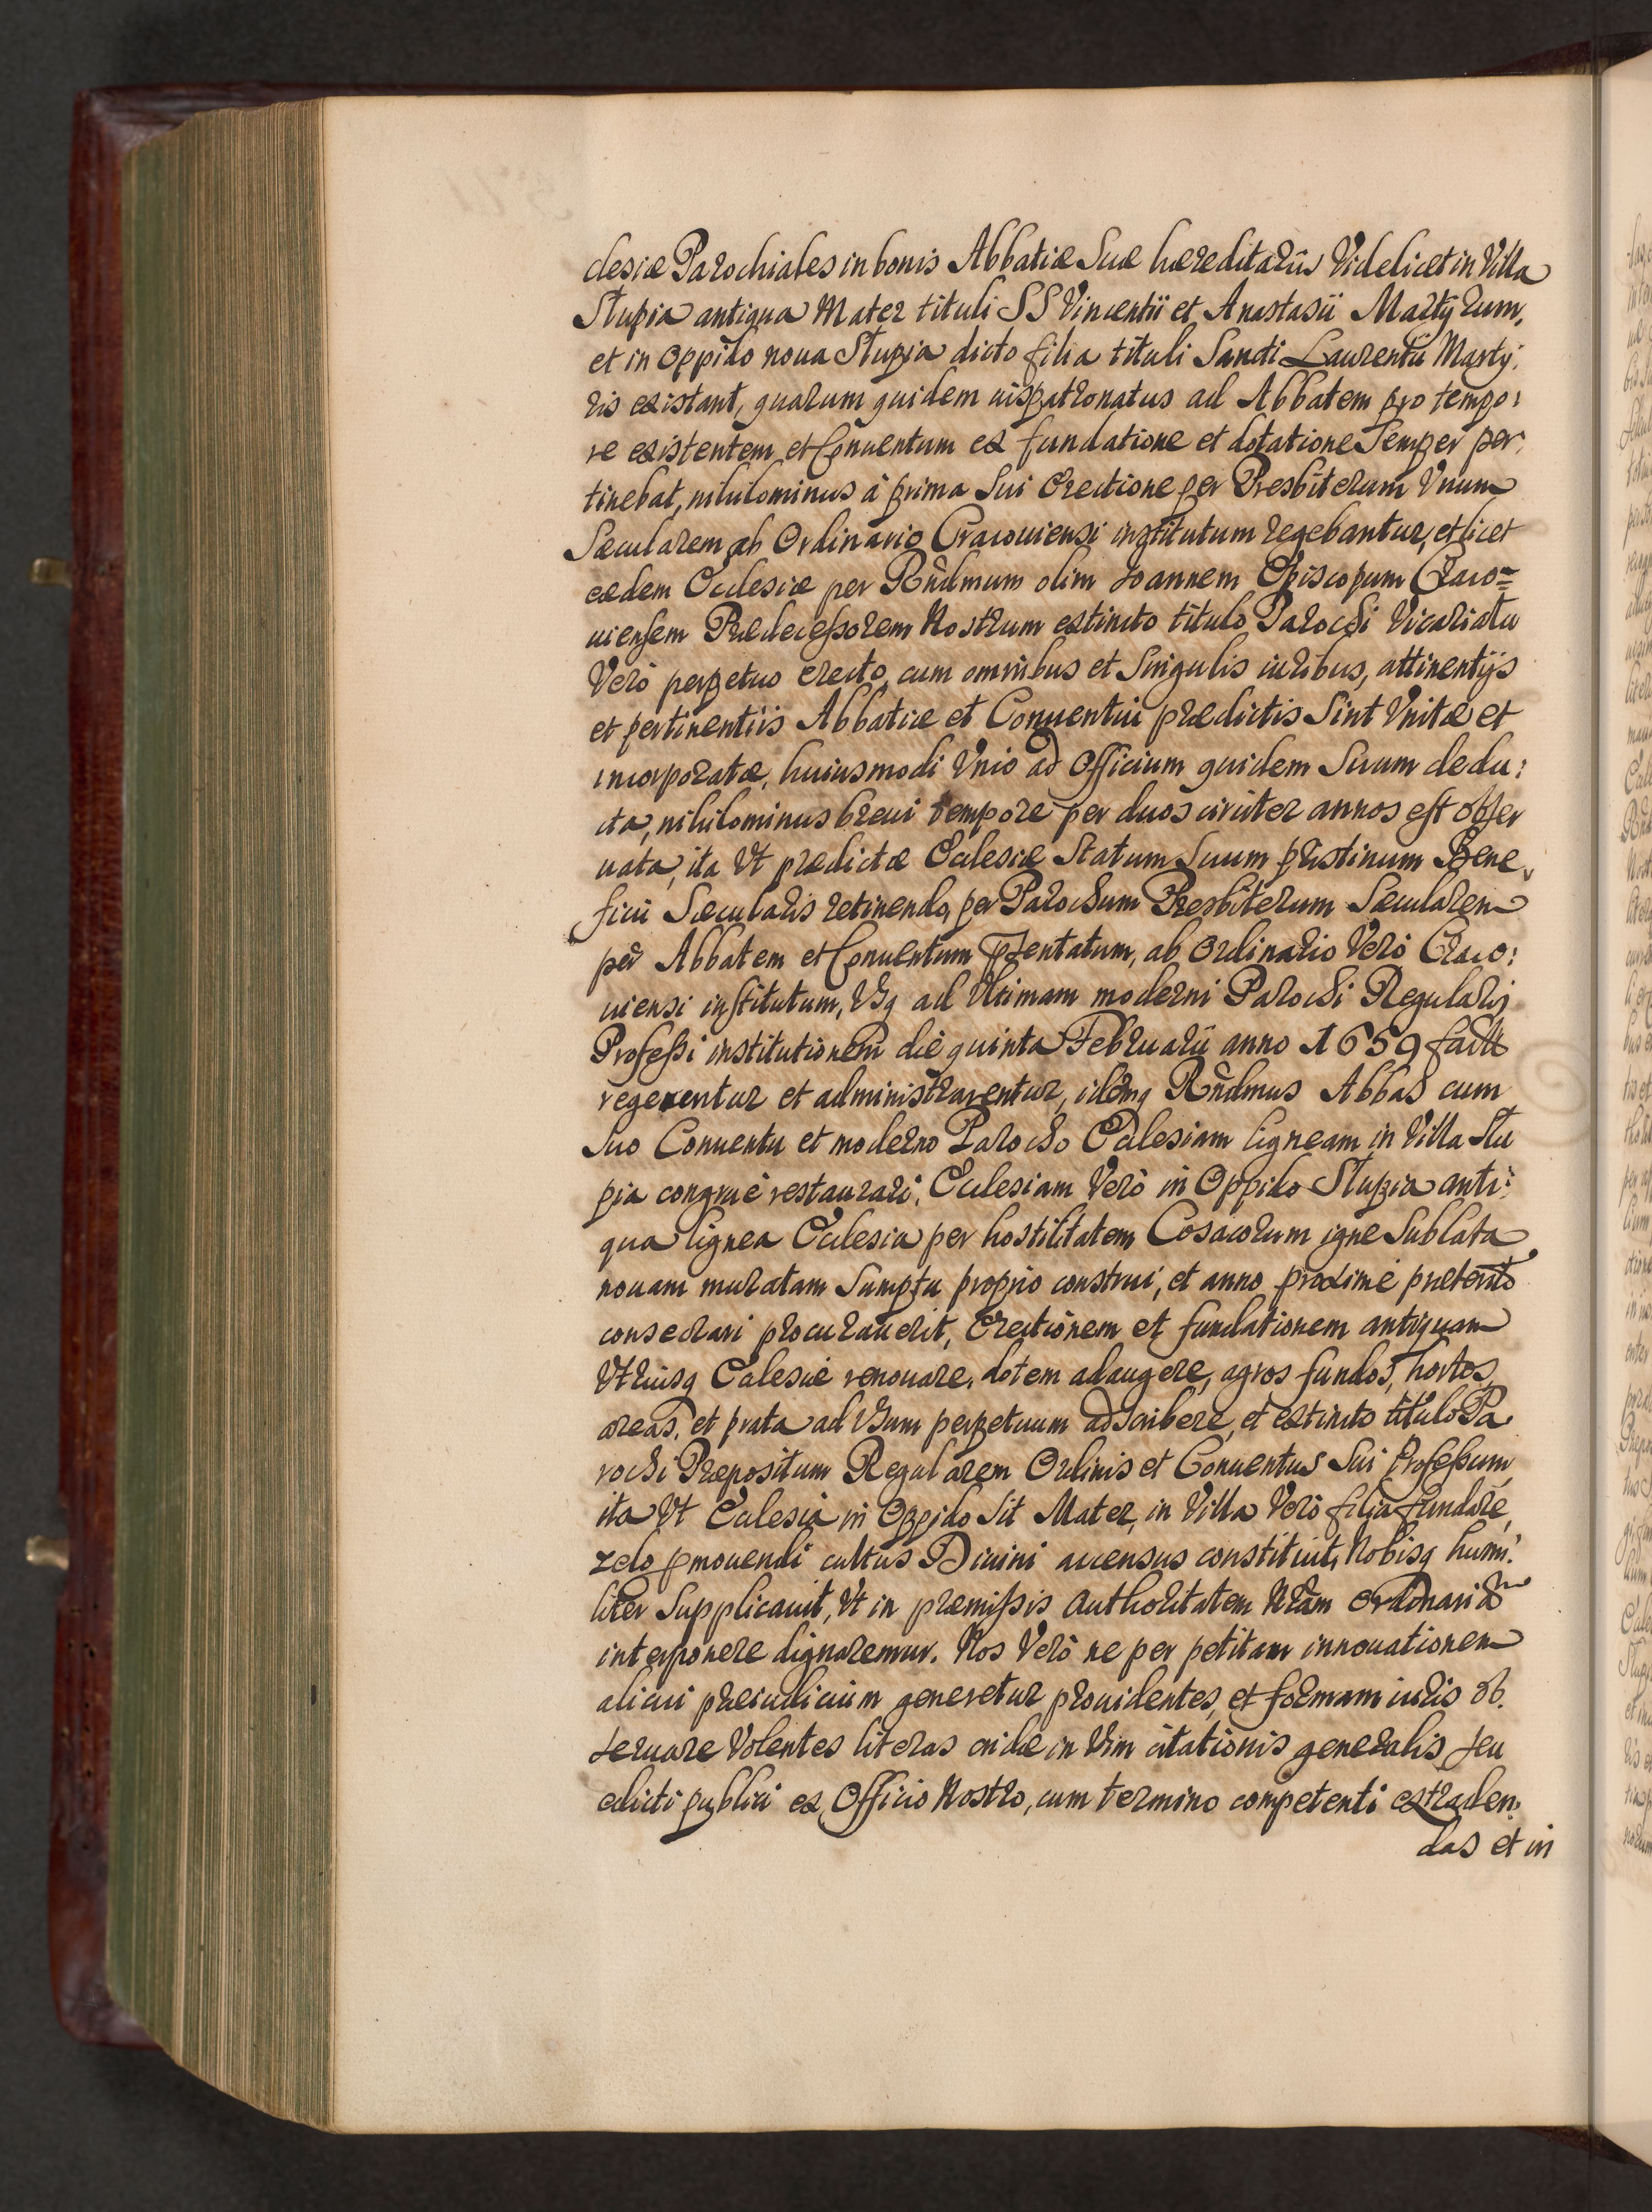 clesiæ Parochiales in bonis Abbatiæ Suæ hæreditarijs Videlicet in Villa
Slupia antiqua Mater tituli SS Vincentii et Anastasii Martÿrum,
et in oppido noua Slupia dicto filia tituli Sancti Laurentii Marty:
ris existant, quarum quidem iuspatronatus ad Abbatem pro tempo:
re existentem et Conuentum ex fundatione et dotatione Semper per:
tinebat, nihilominus à prima Sui Erectione per Presbiterum Vnum
Sæcularem ab Ordinario Cracouiensi institutum regebantur, et licet
eædem Ecclesiæ per Rñdmum olim Joannem Episcopum Craco=
uiensem Prædecessorem Nostrum extincto titulo Parochi Vicariatu
Verò perpetuo erecto, cum omnibus et Singulis iuribus, attinentijs
et pertinentiis Abbatiæ et Conuentui prædictis Sint Vnitæ et
incorporatæ, huiusmodi Vnio ad Officium quidem Suum dedu:
cta, nihilominus breui tempore per duos circiter annos est obser
uata, ita Vt prædictæ Ecclesiæ Statum Suum pristinum Bene
ficii Sæcularis retinendo, per Parochum Presbiterum Sæcularem
per Abbatem et Conuentum pñtentatum, ab Ordinario Verò Craco:
uiensi institutum, Vsq ad Vltimam moderni Parochi Regularis
Professi institutionem die quinta Februarii anno 1659 factã
regerentur et administrarentur, idemq Rñdmus Abbas cum
Suo Conuentu et moderno Parocho Ecclesiam ligneam in Villa Slu
pia congruè restaurari, Ecclesiam Verò in Oppido Slupia anti:
qua lignea Ecclesia per hostilitatem Cosacorum igne Sublata
nouam muratam Sumptu proprio construi, et anno proximè præterito
consecrari procurauerit, Erectionem et fundationem antiquam
Vtriusq Eclesiæ renouare, dotem adaugere, agros fundos, hortos,
areas, et prata ad Vsum perpetuum adscribere, et extincto titulo Pa
rochi Præpositum Regularem Ordinis et Conuentus Sui Professum,
ita Vt Ecclesia in Oppido Sit Mater, in Villa Verò filia fundare,
zelo pmouendi cultus Diuini accensus constituit, Nobisq humi:
liter Supplicauit, Vt in præmissis Authoritatem Nram ordinariã
interponere dignaremur. Nos Verò ne per petitam innouationem
alicui præiudicium generetur prouidentes, et formam iuris ob.
seruare Volentes literas in Vim citationis generalis, seu
edicti publici ex Officio Nostro, cum termino competenti extraden:
das et in